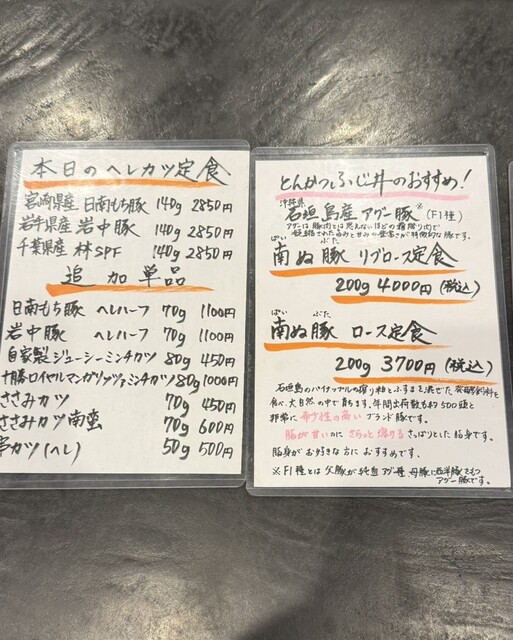 本日のヘレカツ定食
宮崎県産 日南もち豚 140g 2850円
岩手県産 岩中豚 140g 2850円
千葉県産 林SPF 140g 2850円
追加単品
日南もち豚 ヘレハーフ 70g 1100円
岩中豚 ヘレハーフ 70g 1100円
自家製ジューシーミンチカツ 80g 450円
十勝ロイヤルマンガリッツァミンチカツ 80g 1000円
ささみカツ 70g 450円
ささみカツ南蛮 70g 600円
串カツ(ヘレ) 50g 500円
とんかつふじ井のおすすめ!
沖縄県
石垣島産アグー豚※(F1種)
アグーは豚肉とは思えないほどの霜降り肉で
ぱい ぶた
南ぬ豚 リブロース定食
200g 4000円(税込)
ぱい ぶた
南ぬ豚 ロース定食
200g 3700円(税込)
石垣島のパイナップルの搾り粕とふすまを混ぜた発酵飼料を
食べ、大自然の中で育ちます。年間出荷数も約500頭と
非常に希少性の高いブランド豚です。
脂が甘いのにさらっと溶けるさっぱりとした脂身です。
脂身がお好きな方におすすめです。
※F1種とは父豚が純血アグー種 母豚に西洋豚をもつ
アグー豚です。